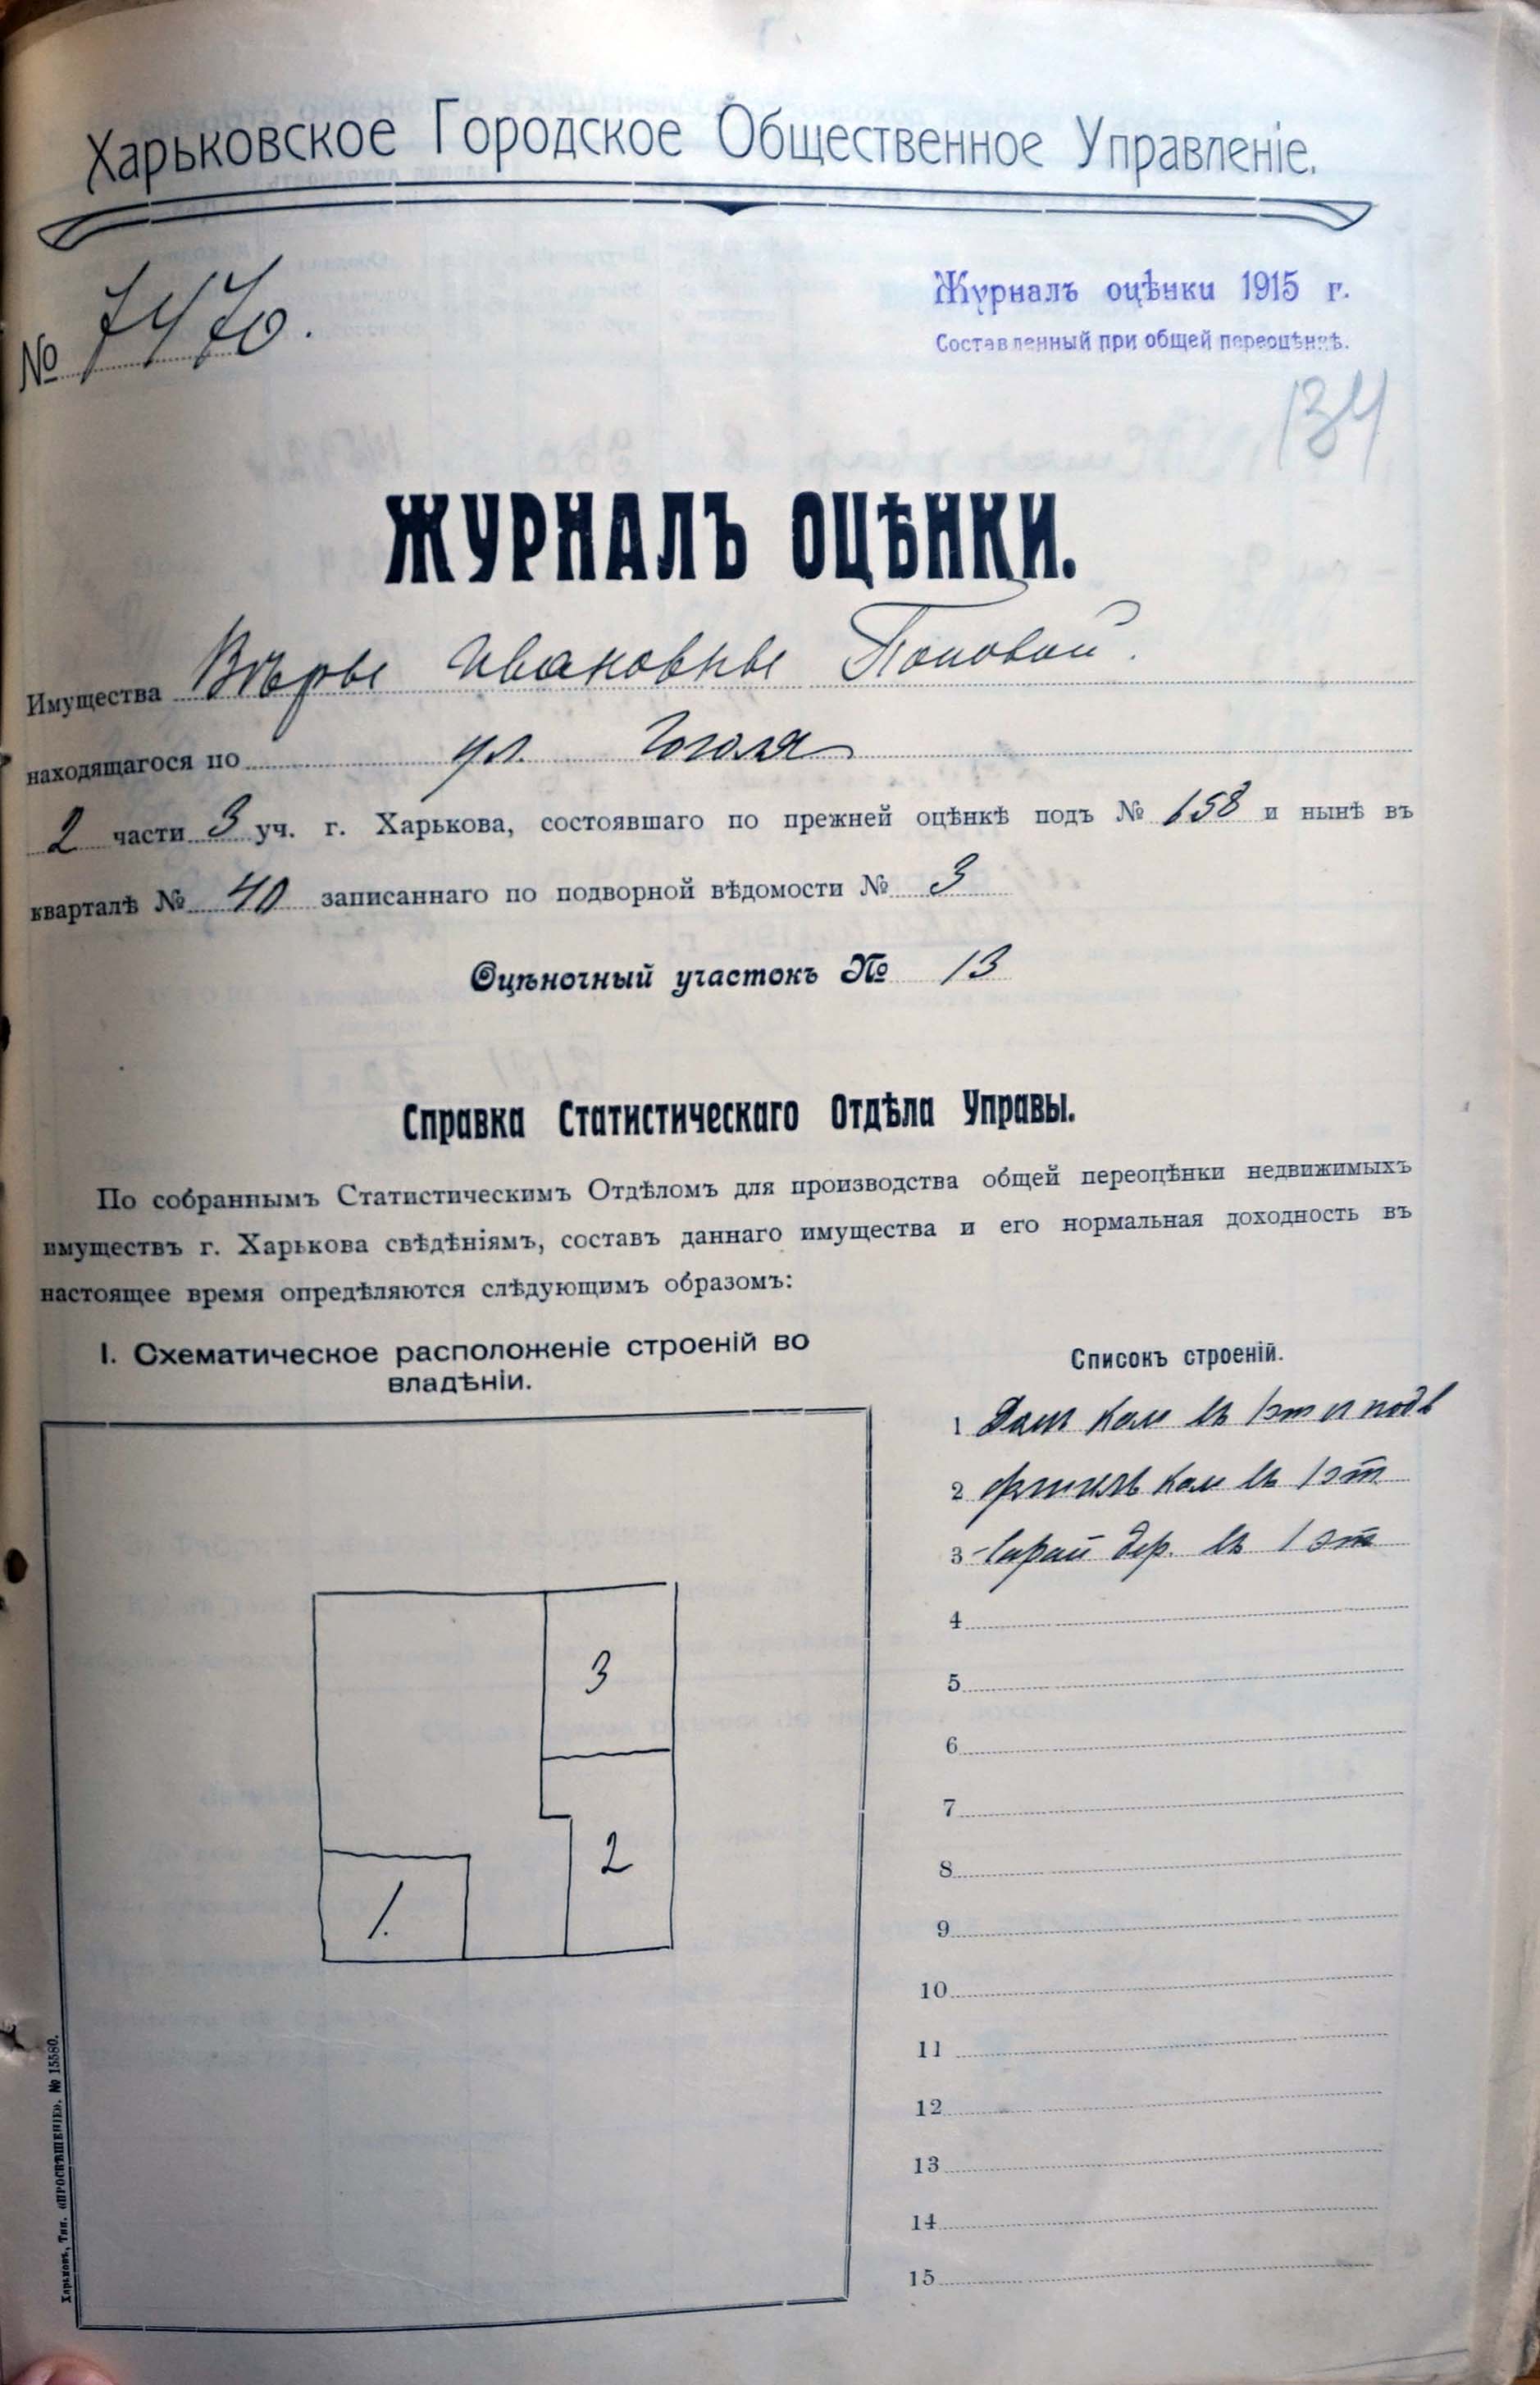 Харьковское Городское Общественное Управленіе.
№ 7470.
Журналъ оцѣнки 1915 г.
Составленный при общей переоцѣнкѣ.
134
ЖУРНАЛЪ ОЦѢНКИ.
Имущества Вѣры Ивановны Поповой.
находящагося по ул. Гоголя
2 части 3 уч. г. Харькова, состоявшаго по прежней оцѣнкѣ подъ № 158 и нынѣ въ
кварталѣ № 40 записаннаго по подворной вѣдомости № 3
Оцѣночный участокъ № 13
Справка Статистическаго Отдѣла Управы.
По собраннымъ Статистическимъ Отдѣломъ для производства общей переоцѣнки недвижимыхъ
имуществъ г. Харькова свѣдѣніямъ, составъ даннаго имущества и его нормальная доходность въ
настоящее время опредѣляются слѣдующимъ образомъ:
I. Схематическое расположеніе строеній во
владѣніи.
3
2
1.
Списокъ строеній.
1 Домъ кам въ 1 эт и подв
2 флигель кам въ 1 эт
3 Сарай дер. въ 1 эт
4
5
6
7
8
9
10
11
12
13
14
15
Харьковъ, Тип. «ПРОСВѢЩЕНІЕ». № 15580.